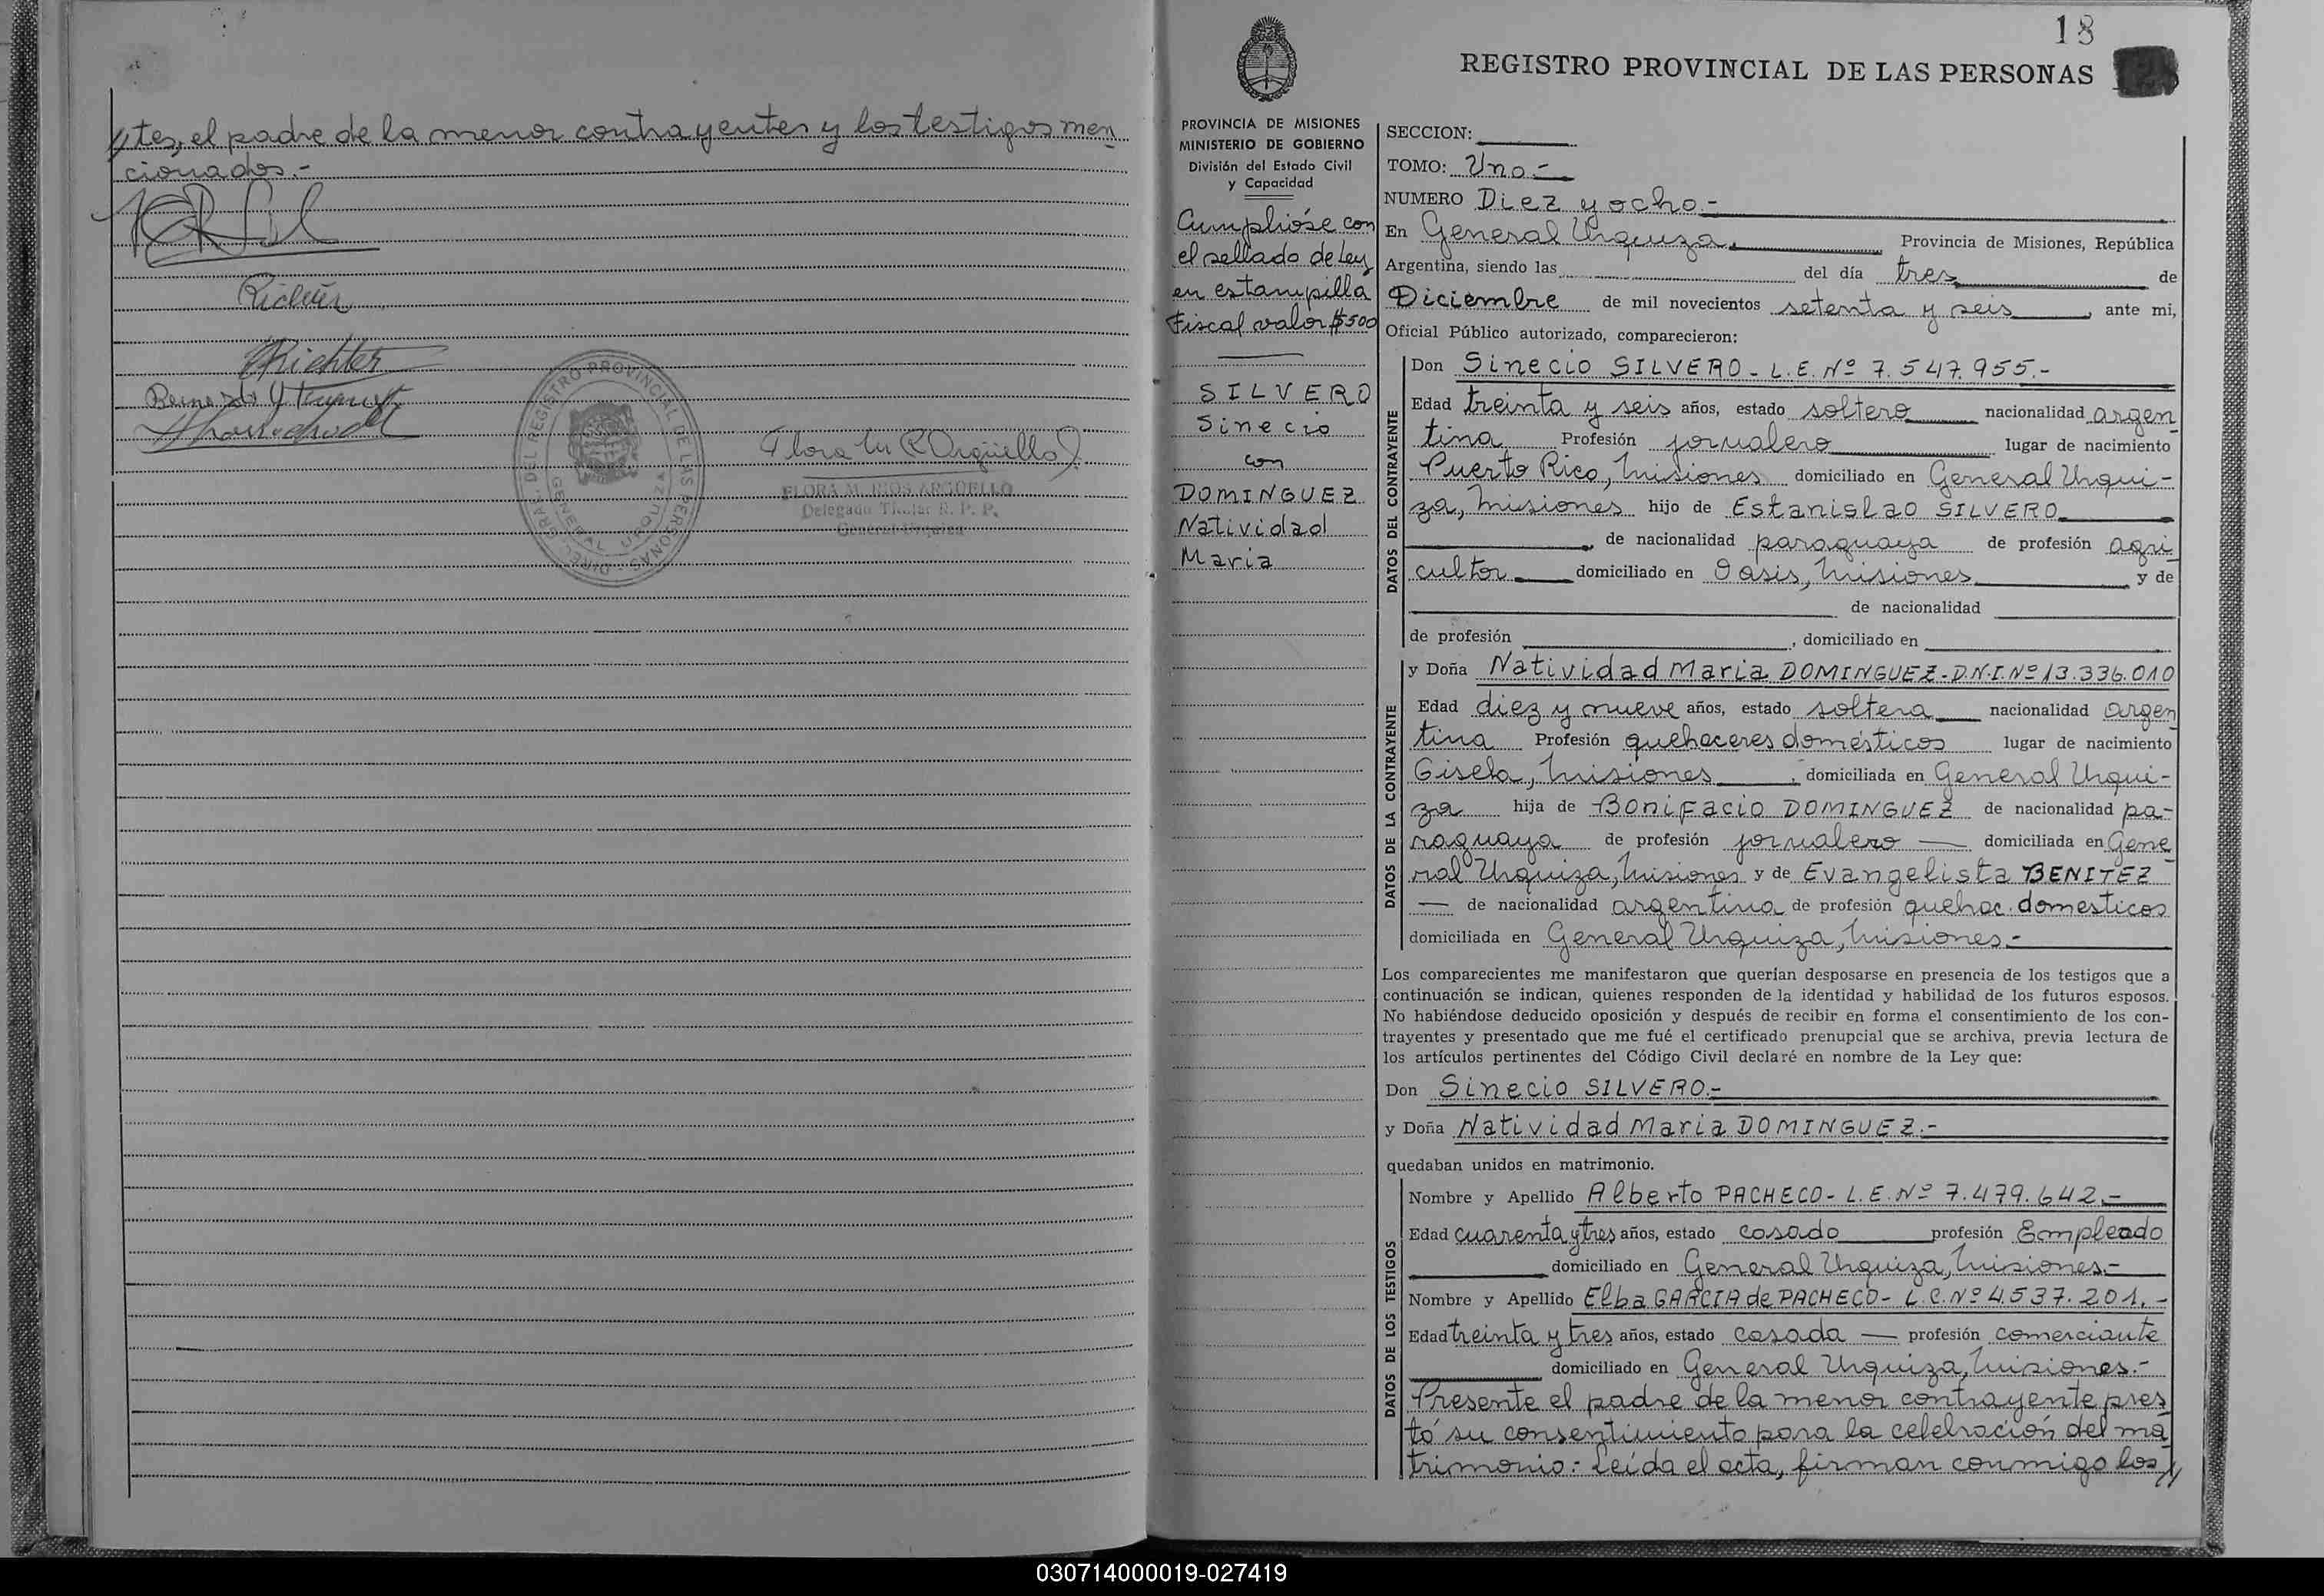 tes, el padre de la menor contrayentes y los testigos men
cionados.-
Richter
FLORA M. RIOS ARGÜELLO
Delegado Titular R. P. P.
General Urquiza
18
REGISTRO PROVINCIAL DE LAS PERSONAS
PROVINCIA DE MISIONES
MINISTERIO DE GOBIERNO
División del Estado Civil
y Capacidad
Cumplióse con
el sellado de Ley
en estampilla
Fiscal valor $500
SILVERO
Sinecio
con
DOMINGUEZ
Natividad
Maria
SECCION:
TOMO: Uno.-
NUMERO Diez y ocho.-
En General Urquiza, Provincia de Misiones, República
Argentina, siendo las del día tres de
Diciembre de mil novecientos setenta y seis, ante mi,
Oficial Público autorizado, comparecieron:
DATOS DEL CONTRAYENTE
Don Sinecio SILVERO - L.E. Nº 7.547.955.-
Edad treinta y seis años, estado soltero nacionalidad argen
tina Profesión jornalero lugar de nacimiento
Puerto Rico, Misiones domiciliado en General Urqui-
za, Misiones hijo de Estanislao SILVERO
, de nacionalidad paraguaya de profesión agri
cultor domiciliado en Oasis, Misiones y de
de nacionalidad
de profesión , domiciliado en
DATOS DE LA CONTRAYENTE
y Doña Natividad Maria DOMINGUEZ - D.N.I. Nº 13.336.010
Edad diez y nueve años, estado soltera nacionalidad argen
tina Profesión quehaceres domésticos lugar de nacimiento
Gisela, Misiones, domiciliada en General Urqui-
za hija de Bonifacio DOMINGUEZ de nacionalidad pa-
raguaya de profesión jornalero domiciliada en Gene
ral Urquiza, Misiones y de Evangelista BENITEZ
de nacionalidad argentina de profesión quehac. domesticos
domiciliada en General Urquiza, Misiones.-
Los comparecientes me manifestaron que querían desposarse en presencia de los testigos que a
continuación se indican, quienes responden de la identidad y habilidad de los futuros esposos.
No habiéndose deducido oposición y después de recibir en forma el consentimiento de los con-
trayentes y presentado que me fué el certificado prenupcial que se archiva, previa lectura de
los artículos pertinentes del Código Civil declaré en nombre de la Ley que:
Don Sinecio SILVERO.-
y Doña Natividad Maria DOMINGUEZ.-
quedaban unidos en matrimonio.
DATOS DE LOS TESTIGOS
Nombre y Apellido Alberto PACHECO - L.E. Nº 7.479.642.-
Edad cuarenta y tres años, estado casado profesión Empleado
domiciliado en General Urquiza, Misiones.-
Nombre y Apellido Elba GARCIA de PACHECO - L.C. Nº 4.537.201.-
Edad treinta y tres años, estado casada profesión comerciante
domiciliado en General Urquiza, Misiones.-
Presente el padre de la menor contrayente pres
tó su consentimiento para la celebración del ma
trimonio: Leída el acta, firman conmigo los
030714000019-027419